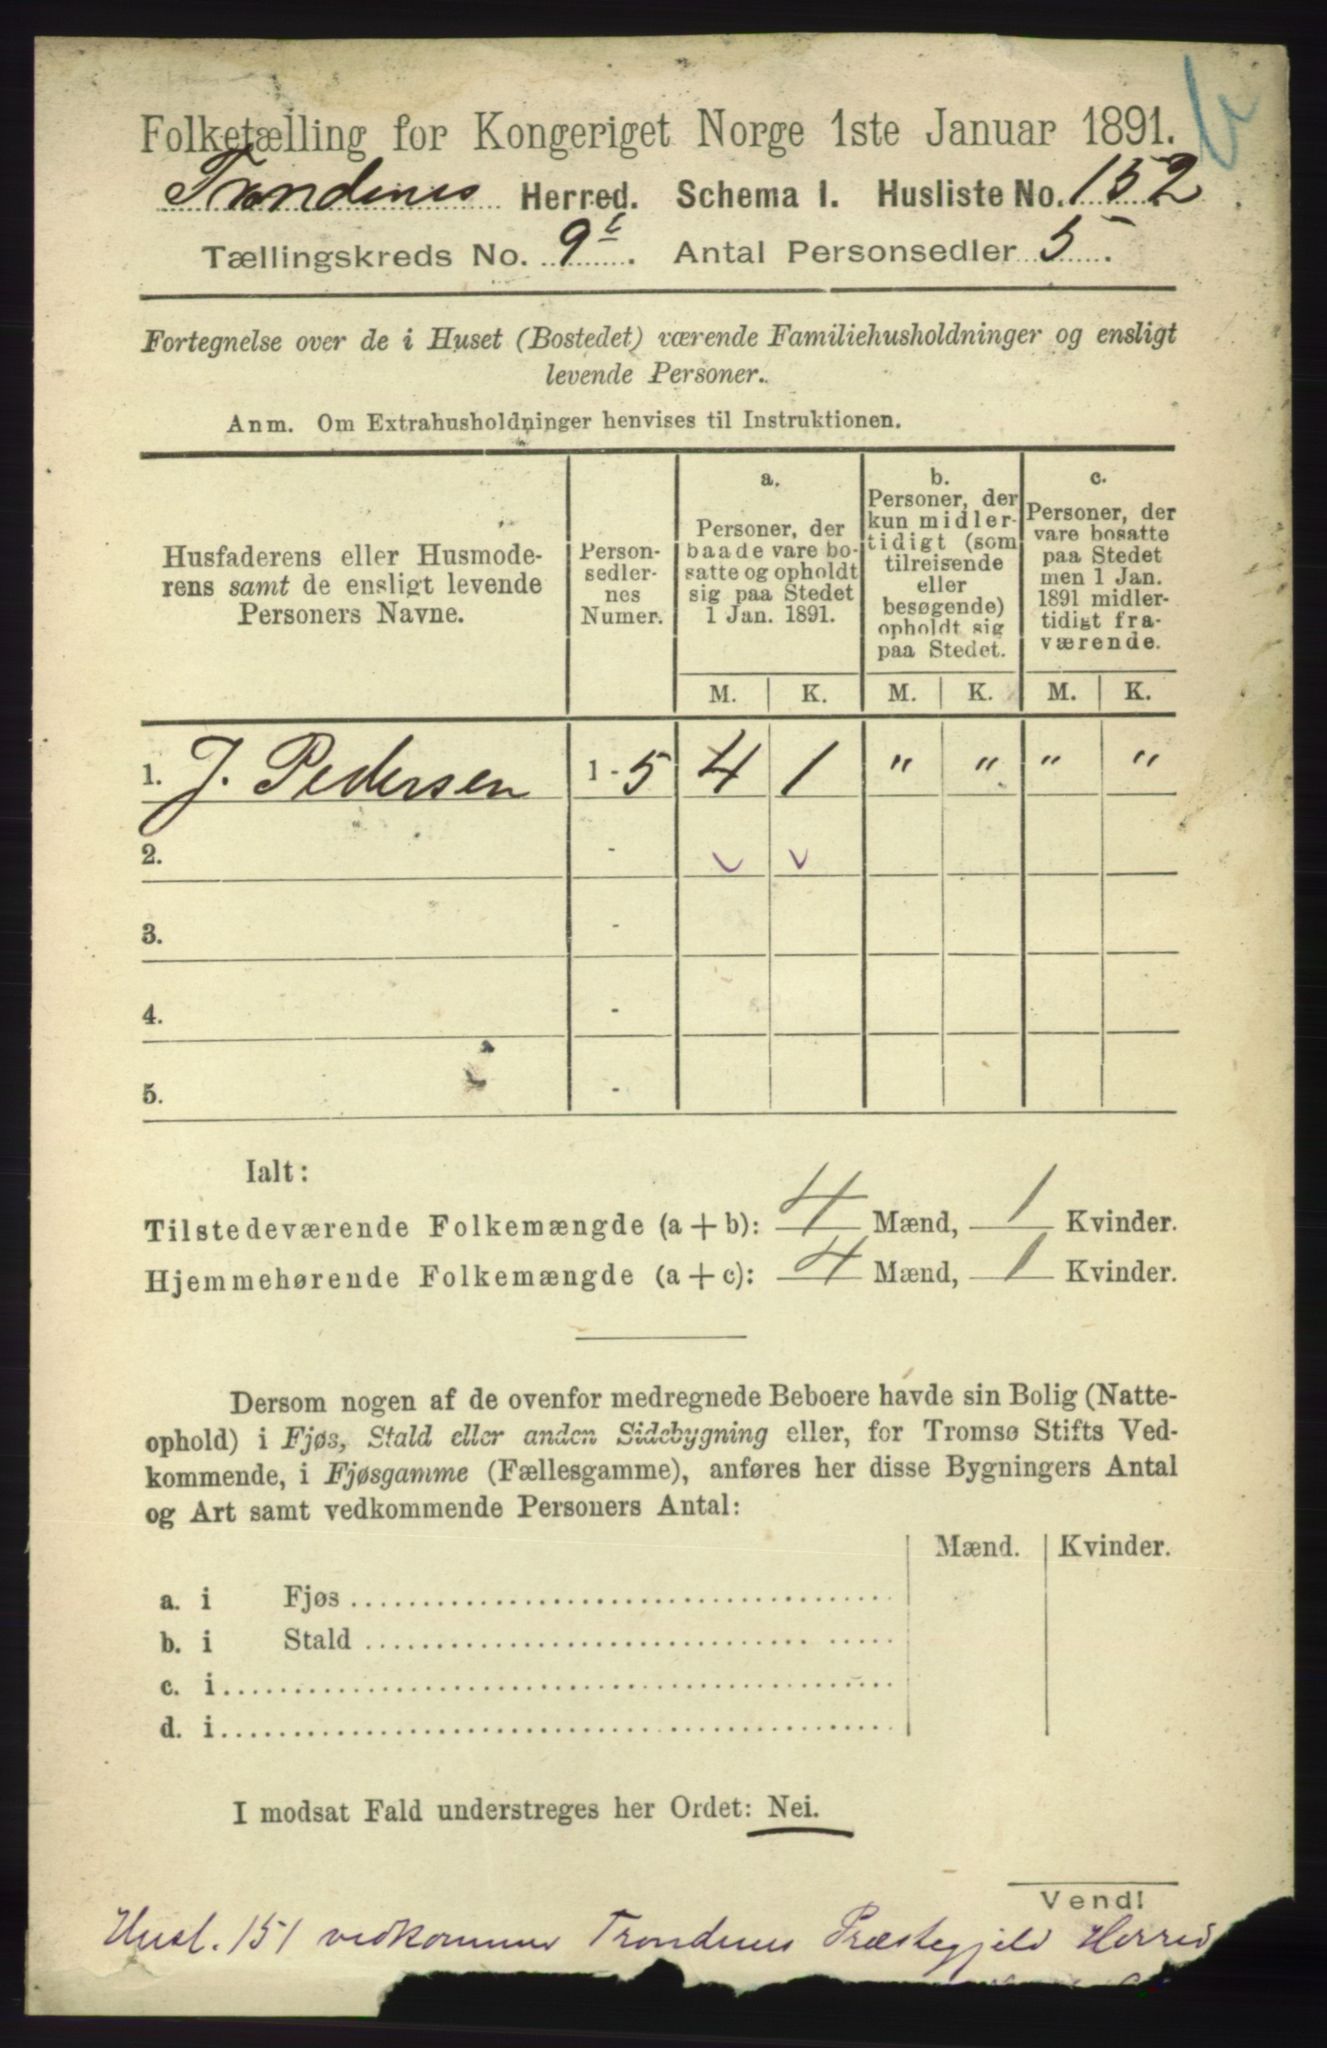 Folketælling for Kongeriget Norge 1ste Januar 1891.
Trondenes Herred. Schema I. Husliste No. 152
Tællingskreds No. 9 . Antal Personsedler 5 .
Fortegnelse over de i Huset (Bostedet) værende Familiehusholdninger og ensligt
levende Personer.
Anm. Om Extrahusholdninger henvises til Instruktionen.
Husfaderens eller Husmode-
rens samt de ensligt levende
Personers Navne.
Person-
sedler-
nes
Numer.
a.
Personer, der
baade vare bo-
satte og opholdt
sig paa Stedet
1 Jan. 1891.
b.
Personer, der
kun midler-
tidigt (som
tilreisende
eller
besøgende)
opholdt sig
paa Stedet.
c.
Personer, der
vare bosatte
paa Stedet
men 1 Jan.
1891 midler-
tidigt fra-
værende.
M. K. M. K. M. K.
1. J. Pedersen 1 - 5 4 1 " " " "
2. -
3. -
4. -
5. -
Ialt:
Tilstedeværende Folkemængde (a + b): 4 Mænd, 1 Kvinder.
Hjemmehørende Folkemængde (a + c): 4 Mænd, 1 Kvinder.
Dersom nogen af de ovenfor medregnede Beboere havde sin Bolig (Natte-
ophold) i Fjøs, Stald eller anden Sidebygning eller, for Tromsø Stifts Ved-
kommende, i Fjøsgamme (Fællesgamme), anføres her disse Bygningers Antal
og Art samt vedkommende Personers Antal:
Mænd. Kvinder.
a. i Fjøs
b. i Stald
c. i
d. i
I modsat Fald understreges her Ordet: Nei.
Vend!
Husl. 151 vedkommer Trondenes Præstegjeld Herred